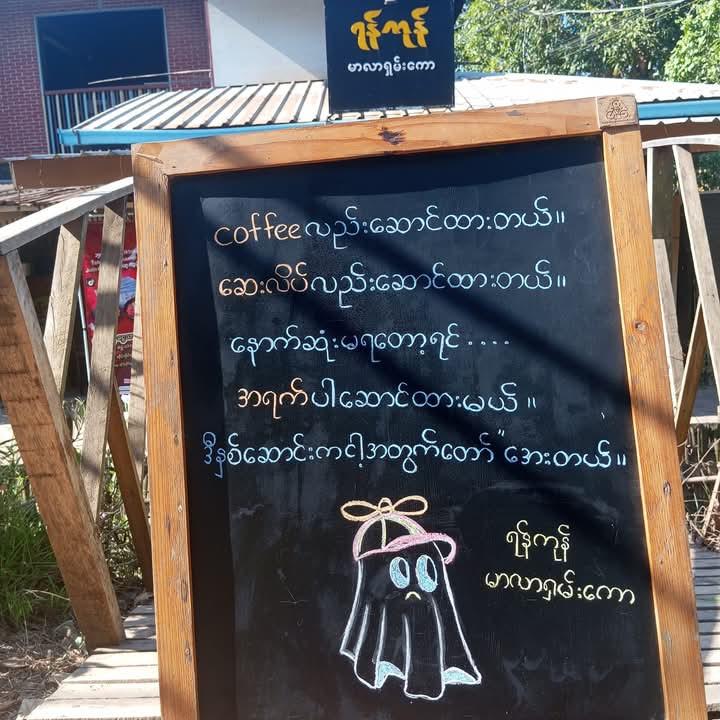 ရန်ကုန်
မာလာရှမ်းကော
coffeeလည်းဆောင်ထားတယ်။
ဆေးလိပ်လည်းဆောင်ထားတယ်။
နောက်ဆုံးမရတော့ရင် ....
အရက်ပါဆောင်ထားမယ် ။
ဒီနှစ်ဆောင်းကငါ့အတွက်တော် "အေးတယ်။
ရန်ကုန်
မာလာရှမ်းကော